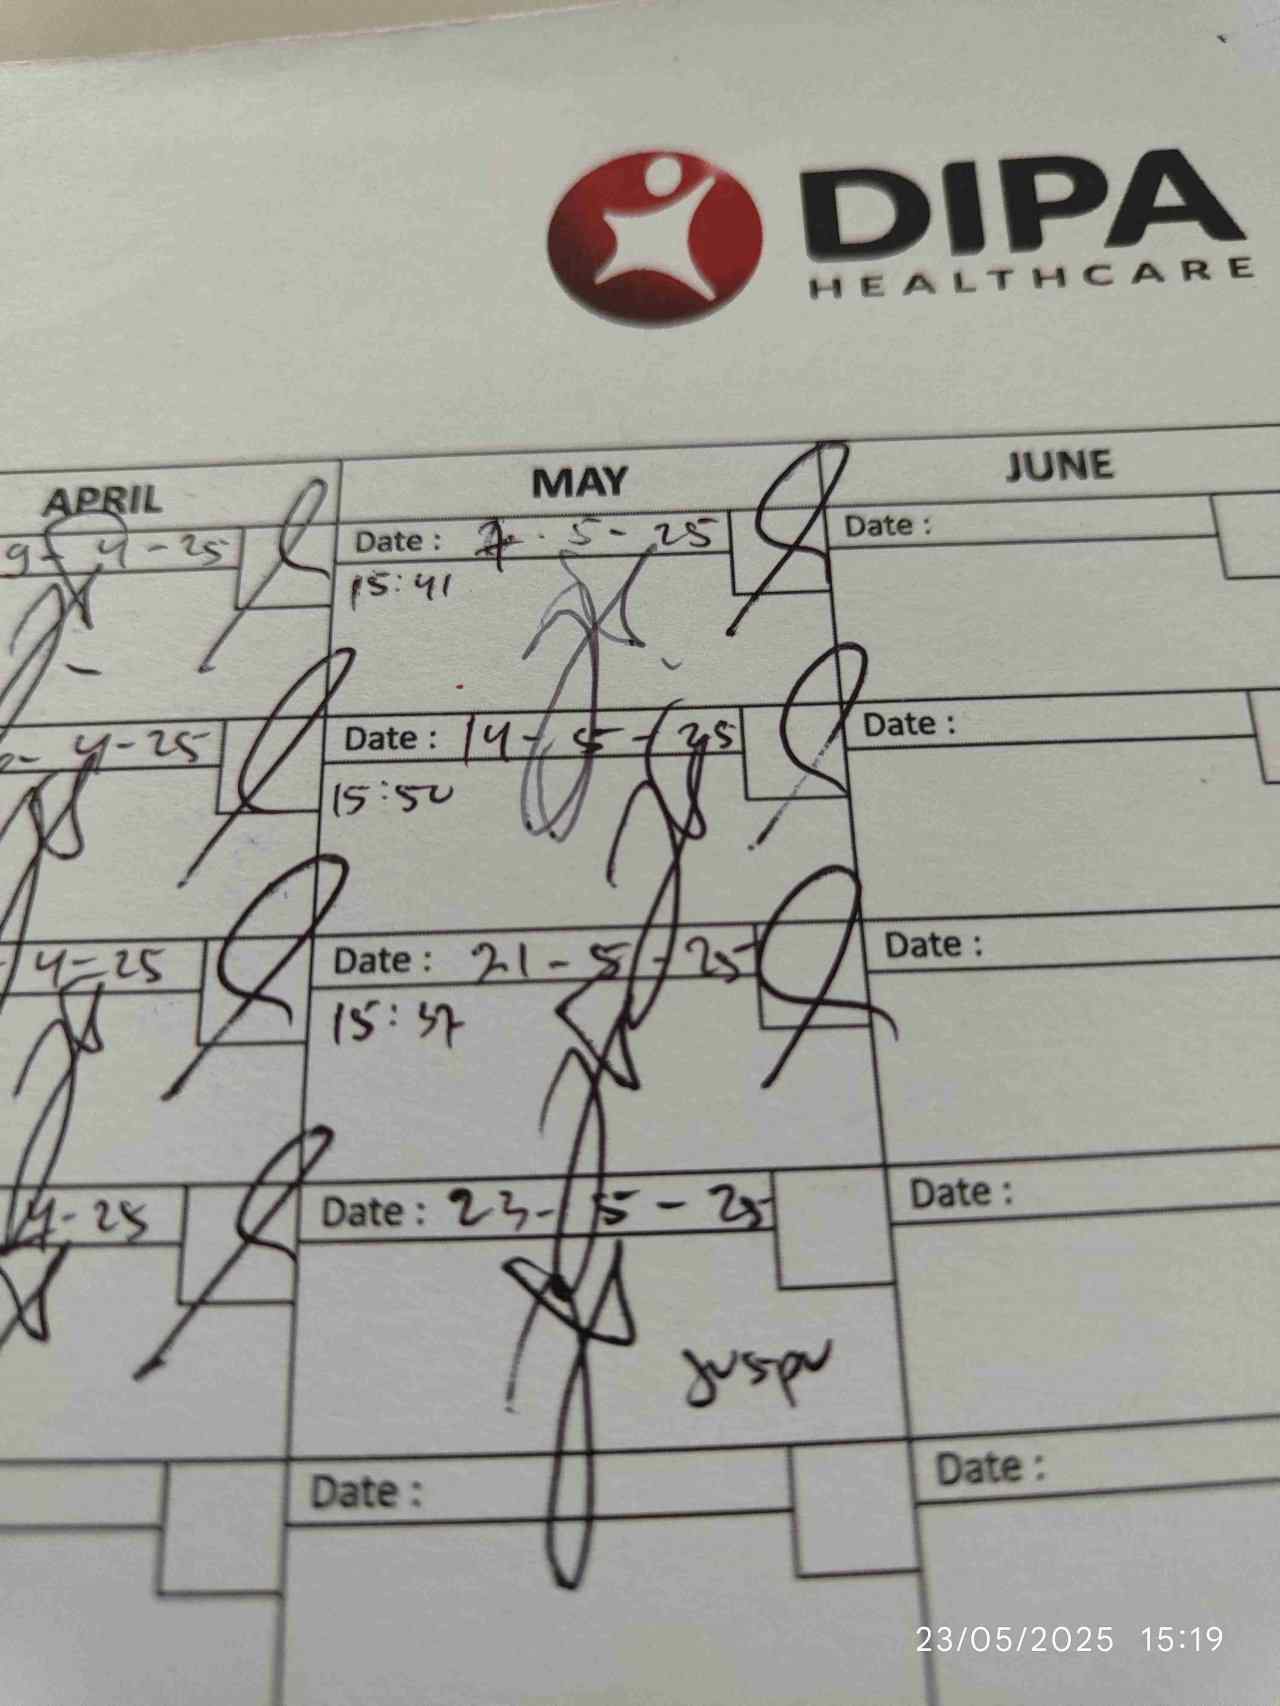 DIPA
HEALTHCARE
APRIL MAY JUNE
9-4-25 Date: 7-5-25 Date:
15:41
4-25 Date: 14-5-25 Date:
15:50
4-25 Date: 21-5-25 Date:
15:37
4-25 Date: 23-5-25 Date:
Date: Date:
23/05/2025 15:19